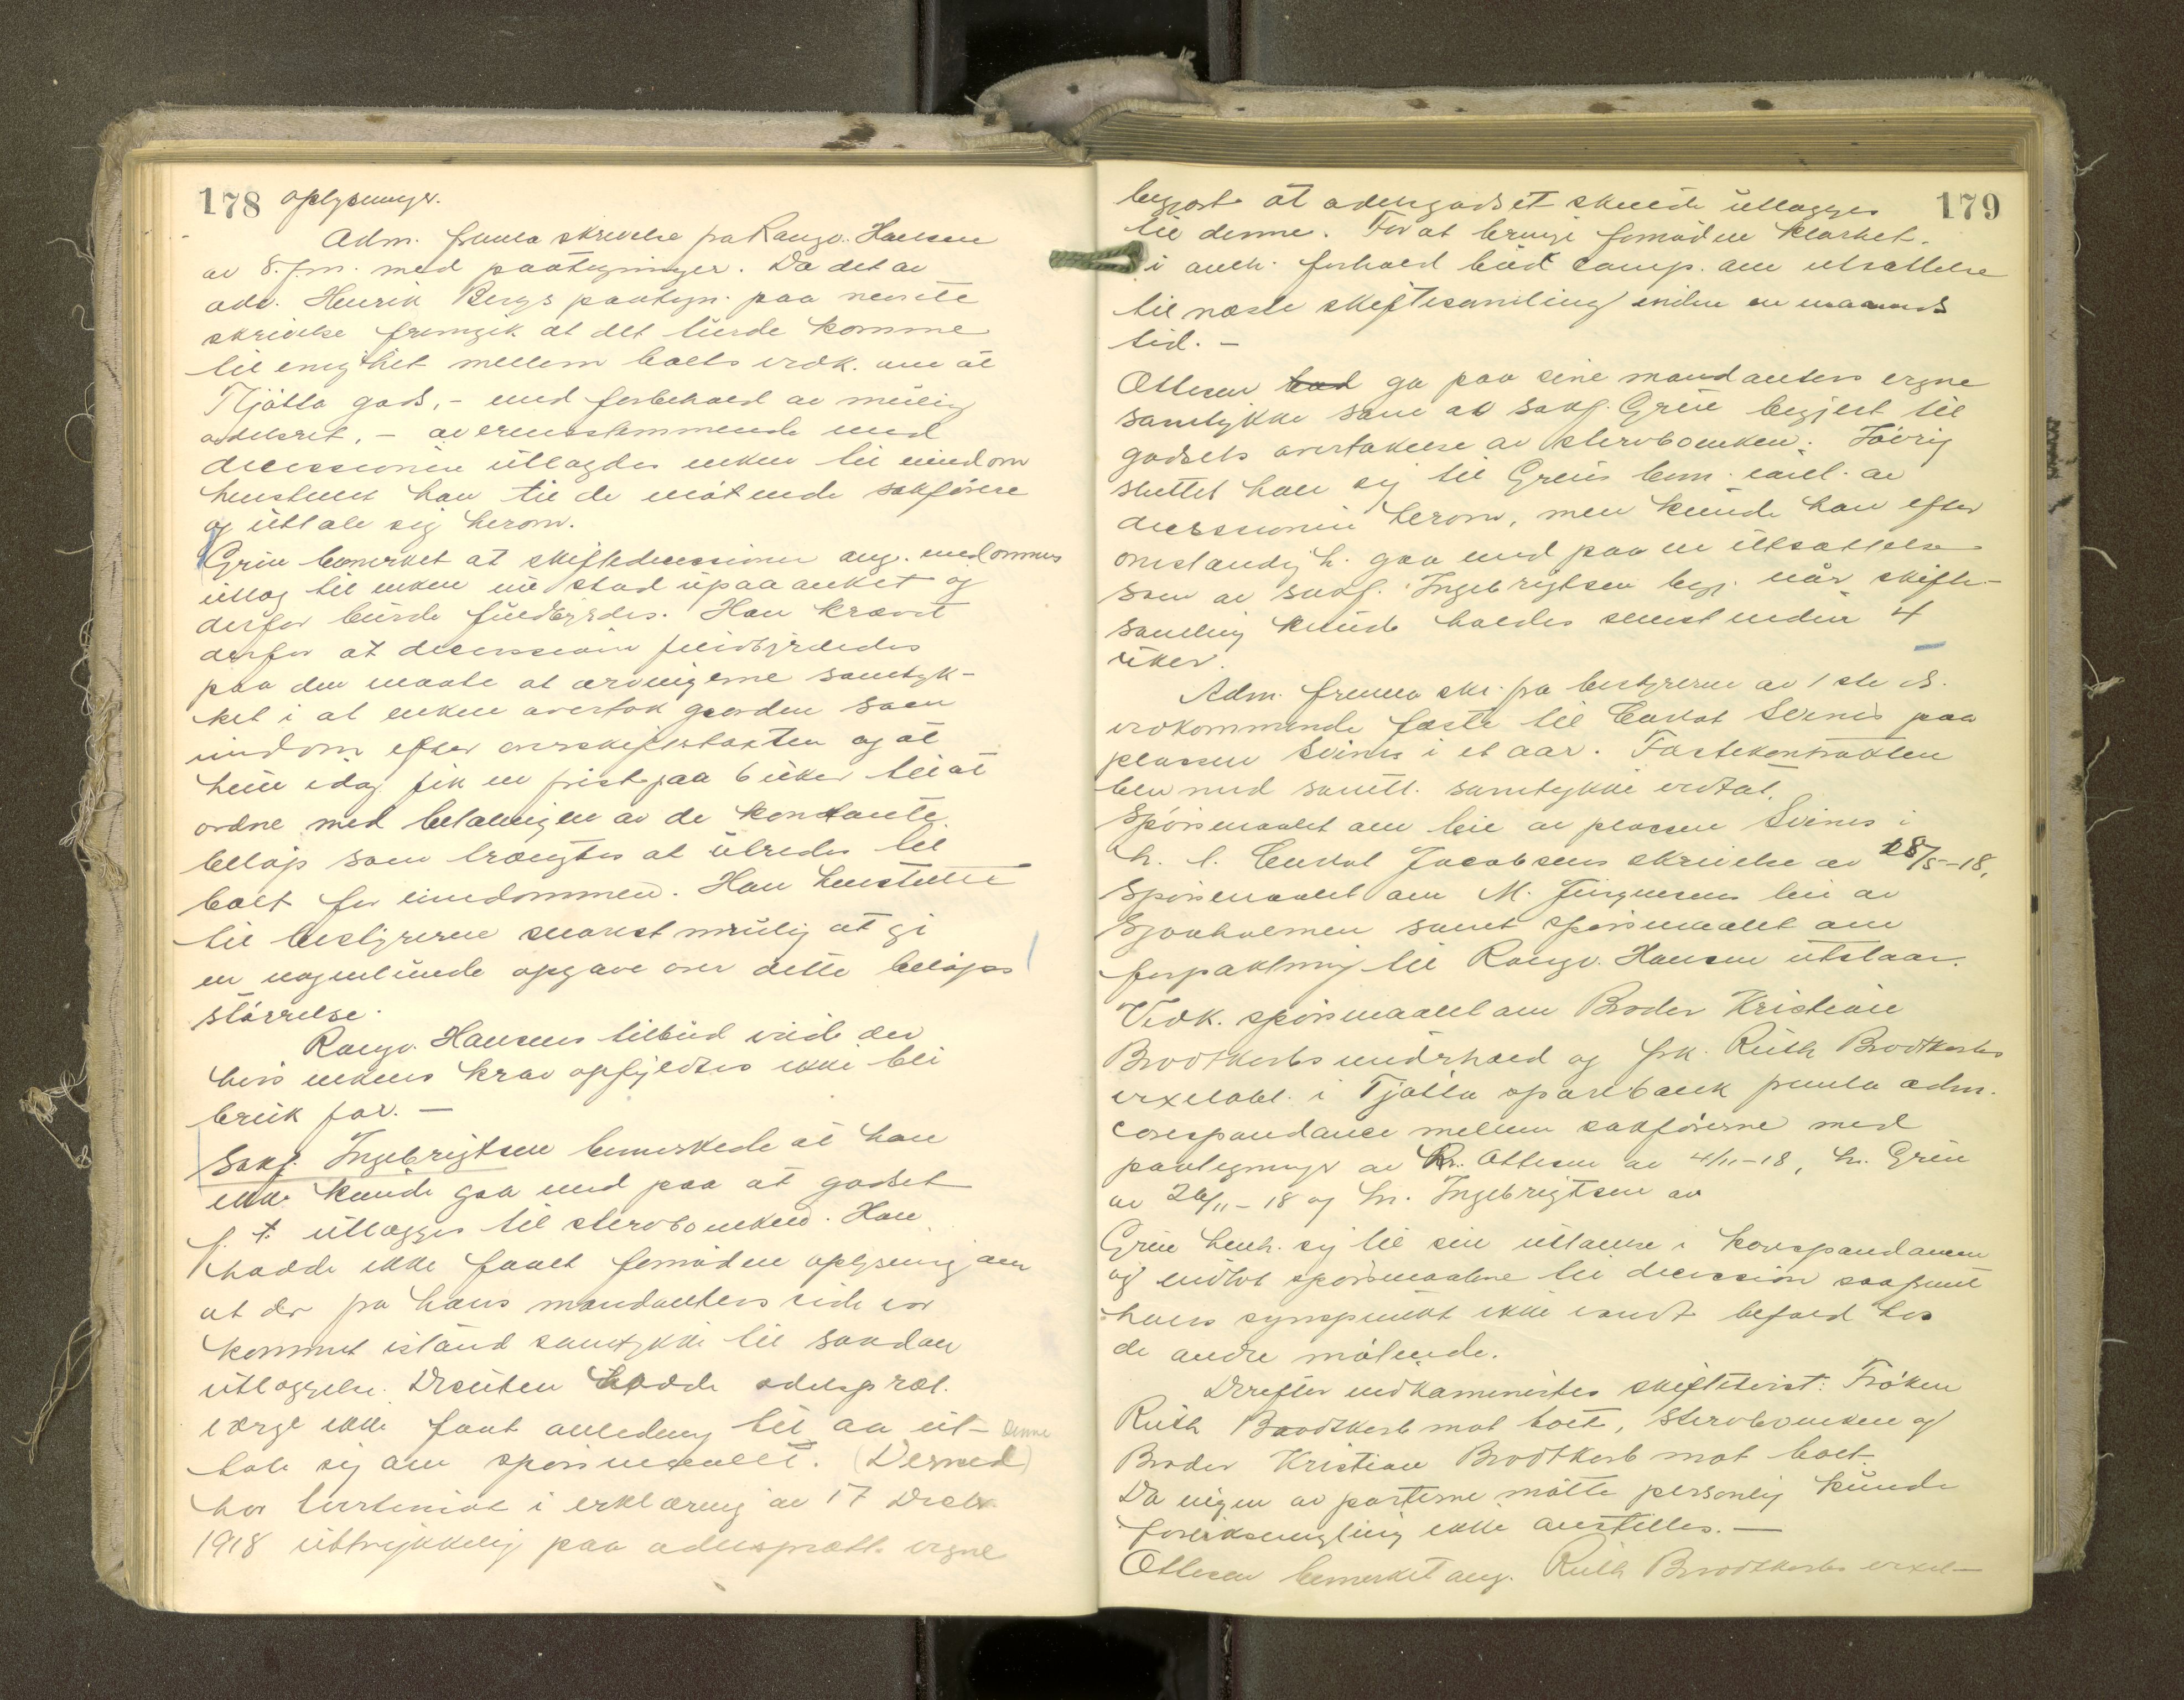 178 oplysninger.
Adm. fremla skrivelse fra Rangv. Hansen
av 8. f.m. med paategninger. Da det av
adv. Henrik Bergs paategn. paa nevnte
skrivelse fremgik at det turde komme
til enighet mellem boets vedk. om at
Tjøtta gods, - med forbehold av mulig
odelsret, - overensstemmende med
decissionen utlagdes enken til eiendom
henstillet han til de møtende sakførere
og uttale sig herom.
Grün bemerket at skiftedecissionen ang. eiendommens
utlæg til enken nu stod upaaanket og
derfor burde fuldbyrdes. Han krævet
derfor at decissionen fuldbyrdedes
paa den maate at arvingerne samtyk-
ket i at enken overtok gaarden som
eiendom efter overskjøntakten og at
hun idag fik en frist paa 6 uker til at
ordne med betalingen av de kontante
beløp som trængtes at utredes til
boet for eiendommen. Han henstillet
til bestyrerne snarest mulig at gi
en nogenlunde opgave over dette beløps
størrelse.
Rangv. Hansens tilbud vilde der
hvis enkens krav opfyldtes ikke bli
bruk for. -
Sakf. Ingebrigtsen bemerkede at han
ikke kunde gaa med paa at godset
f. t. utlægges til stervboenken. Han
hadde ikke faaet fornøden oplysning om
at der fra hans mandanters side var
kommet istand samtykke til saadan
utlæggelse. Desuten hadde odelspræt.
værge ikke faat anledning til aa ut- denne
tale sig om spørsmaalet. (Dermed)
har i erklæring av 17 Decbr.
1918 uttrykkelig paa odelsprætt. vegne
179
begjært at odelsgodset skulde utlægges
til denne. For at bringe fornøden klarhet
i anli. forhold bad comp. om utsættelse
til næste skiftesamling inden en maaneds
tid. -
Ottesen bad ga paa sine mandanters vegne
samtykke som av sakf. Grün begjært til
godsets overtakelse av stervboenken. Iøvrig
sluttet han sig til Grüns bem. av
decissionen herom, men kunde han efter
omstændigh. gaa med paa en utsættelse
som av sakf. Ingebrigtsen begj. når skifte-
samling kunde holdes senest inden 4
uker.
Adm. fremla skr. fra bestyrerne av 1ste ds.
vedkommende fæste til Svines paa
plassen Svines i et aar. Fæstekontrakten
blev med samtl. samtykke vedtat.
Spørsmaalet om leie av plassen Svines i
h. t. Jacobsens skrivelse av 28/5-18,
Spørsmaalet om M. Jürgensens leie av
Sjøaholmen samt spørsmaalet om
forpaktning til Rangv. Hansen utstaar.
Vedk. spørsmaalet om Broder Kristian
Brodtkorbs underhold og frk. Ruth Brodtkorbs
vexelobl. i Tjøtta sparebank fremla adm.
corespondance mellem sakførerne med
paategninger av Hr. Ottesen av 4/11-18, hr. Grün
av 26/11-18 og hr. Ingebrigtsen av
Grün henh. sig til sin uttalelse i korespondancen
og indlot spørsmaalene til decission saafremt
hans synspunkt ikke vandt bifald hos
de andre møtende.
Derefter indkamineres skiftetvist: Frøken
Ruth Brodtkorb mot boet, stervboenken og
Broder Kristian Brodtkorb mot boet.
Da ingen av parterne møtte personlig kunde
forliksmegling ikke anstilles. -
Ottesen bemerket ang. Ruth Brodtkorbs vexel-